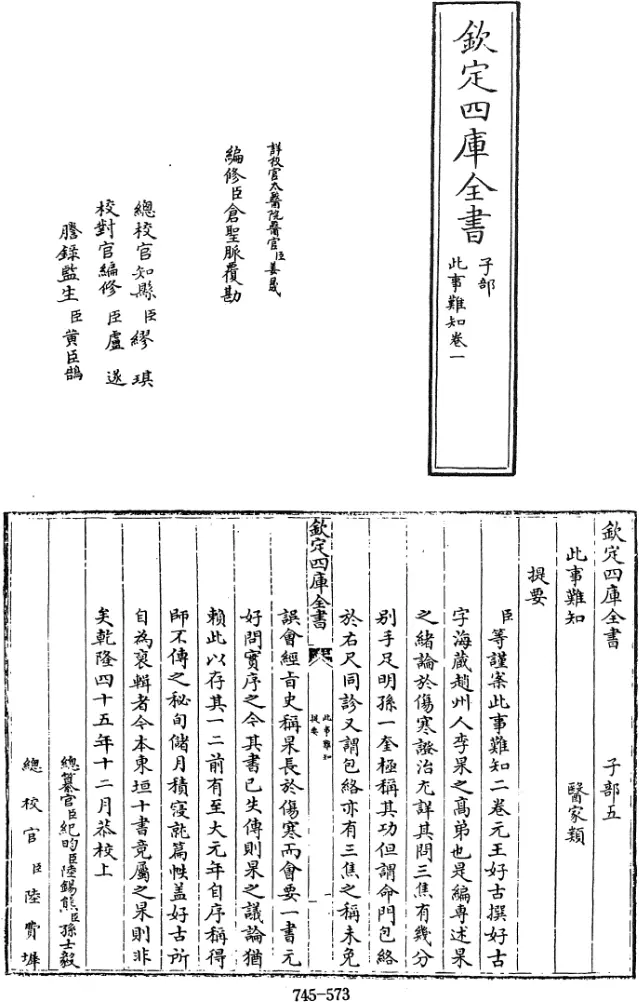 欽定四庫全書
子部
此事難知卷一
詳校官太醫院醫官臣姜晟
編修臣倉聖脈覆勘
總校官知縣臣繆琪
校對官編修臣盧遂
謄錄監生臣黃臣鵠
欽定四庫全書 子部五
此事難知 醫家類
提要
臣等謹案此事難知二卷元王好古撰好古
字海藏趙州人李杲之高弟也是編專述杲
之緒論於傷寒證治尤詳其問三焦有幾分
别手足明孫一奎極稱其功但謂命門包絡
於右尺同診又謂包絡亦有三焦之稱未免
欽定四庫全書
此事難知
提要
一
誤會經旨史稱杲長於傷寒而會要一書元
好問實序之今其書已失傳則杲之議論猶
賴此以存其一二前有至大元年自序稱得
師不傳之秘旬儲月積寖就篇帙蓋好古所
自為裒輯者今本東垣十書竟屬之杲則非
矣乾隆四十五年十二月恭校上
總纂官臣紀昀臣陸錫熊臣孫士毅
總校官臣陸費墀
745-573